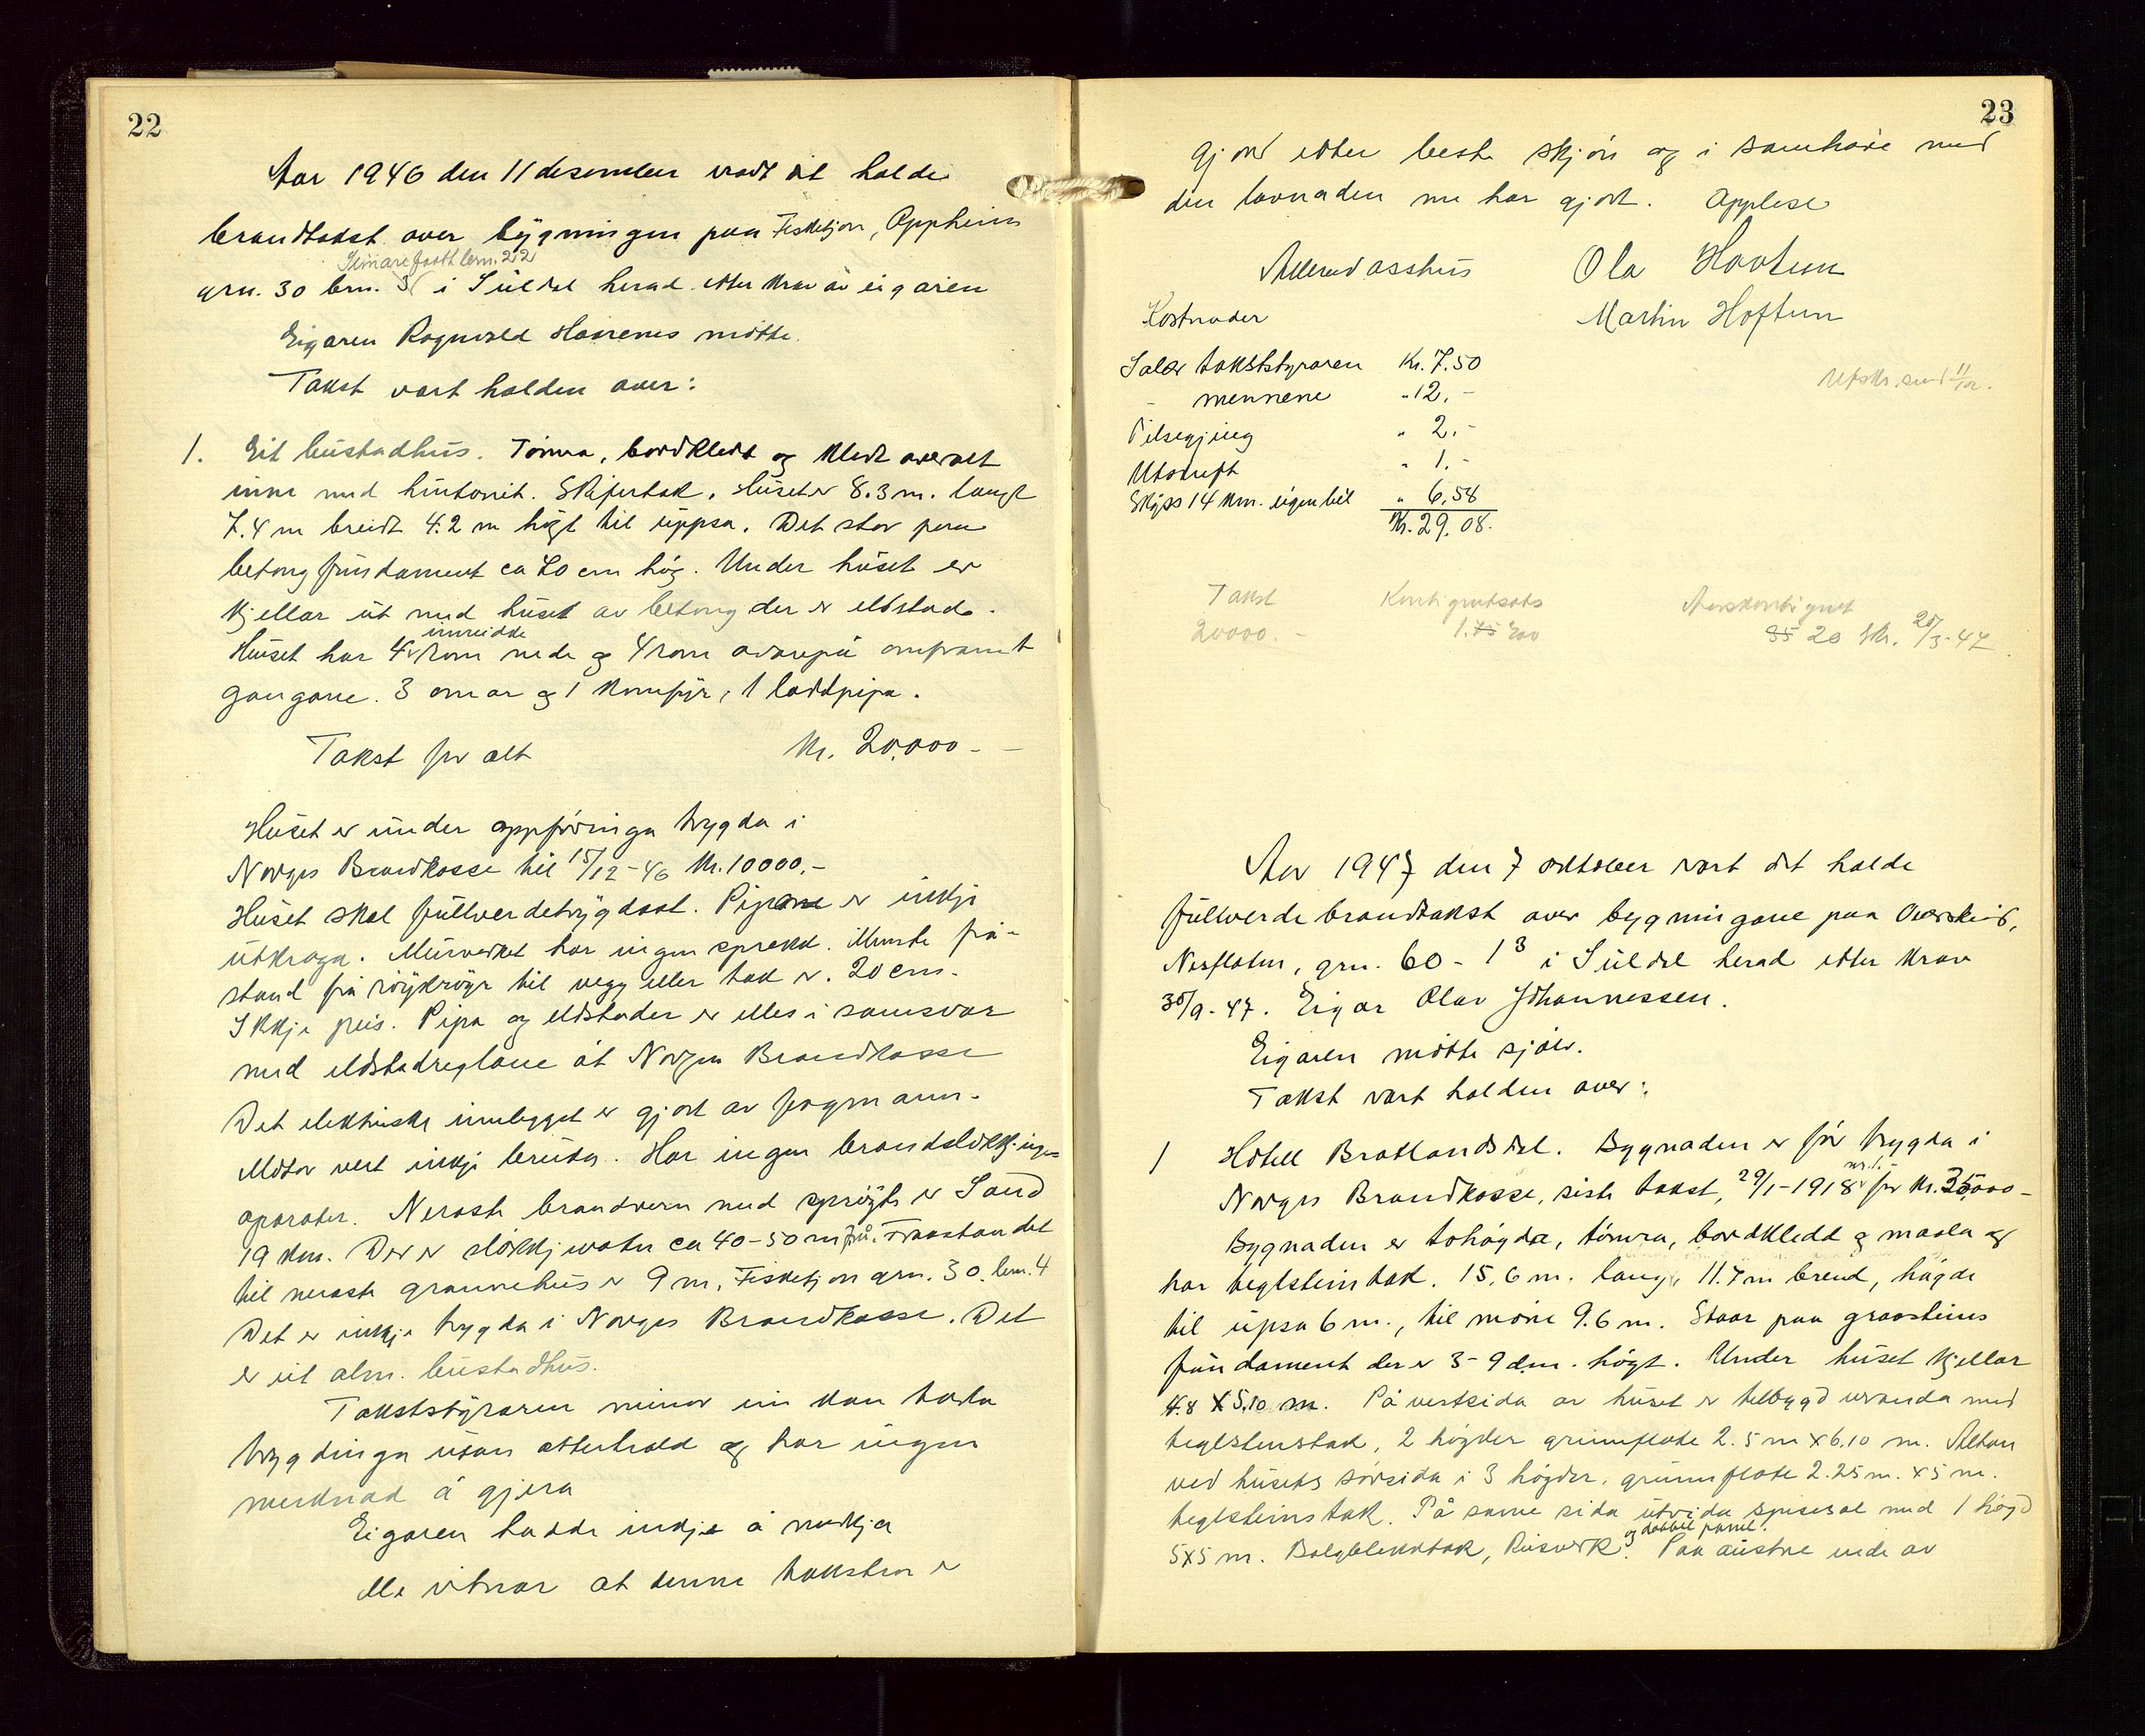 22
Aar 1946 den 11 desember vart det halde
brandtakst over bygningen paa Fisketjon, Oppheim
Seinare faatt brn. 22
grn. 30 brn. 3 i Suldal herad etter krav av eigaren
Eigaren Ragnvald Havrenes møtte.
Takst vart halden over:
1. Eit bustadhus. Tømra, bordkledt og kledt overalt
inne med huntonit. Skifertak. Huset er 8.3 m. langt
7.4 m breidt 4.2 m høgt til uppsa. Det stor paa
betong fundament ca 20 cm høg. Under huset er
kjellar ut med huset av betong der er eldstad.
innreidde
Huset har 4 rom nede og 4 rom ovanpå omframt
gangane. 3 omnar og 1 komfyr, 1 loddpipa.
Takst for alt Kr. 20.000 - -
Huset er under oppføringa trygda i
Norges Brandkasse til 15/12-46 Kr. 10000.-
Huset skal fullverdetrygdast. Pipone er inkje
utkraga. Murverket har ingen sprekk. Minste frå-
stand frå røykrøyr til vegg eller tak er. 20 cm.
Ikkje peis. Pipa og eldstader er elles i samsvar
med eldstadreglane åt Norges Brandkasse
Det elektriske innlegget er gjort av fagmann.
Motor vert inkje bruka. Har ingen brandsløkkjings-
aparater. Neraste brandvern med sprøyte er Sand
19 km. Der er sløkkjevatn ca 40-50 m frå. Fraastandet
til neraste grannehus er 9 m, Fisketjon grn. 30. brn. 4
Det er inkje trygda i Norges Brandkasse. Det
er eit alm. bustadhus.
Takststyraren meinar ein kan taka
trygdinga utan atterhald og har ingen
merknad å gjera
Eigaren hadde inkje å merkja
Me vitnar at denne taksten er
23
gjord etter beste skjøn og i samhøve med
den lovnaden me har gjort. Opplese
Ola Hovtun
Martin Hoftun
Kostnader
Salær takststyraren Kr. 7.50
- mennene " 12.-
Tilsegjing " 2.-
Utskrift " 1.-
Skyss 14 km. eigen bil " 6,58
Kr. 29.08.
Utskr. send 11/12.
Takst Kontigentsats Aarskontigent
20000.- 1.75 20 Skr. 20/3-47
Aar 1947 den 7 oktober vart det halde
fullverde brandtakst over bygningane paa Overskeid,
Nesflaten, grn. 60 - 1 3 i Suldal herad etter krav
30/9-47. Eigar Olav Johannessen.
Eigaren møtte sjølv.
Takst vart halden over:
1 Hotell Bratlandsdal. Bygnaden er før trygda i
Norges Brandkasse, siste takst, 29/1-1918 for Kr. 35000-
Bygnaden er tohøgda, tømra, bordkledd og maala og
har teglsteinstak. 15.6 m. lang, 11.7 m breid, høgde
til upsa 6 m., til møne 9.6 m. Staar paa graasteins
fundament der er 3-9 dm. høgt. Under huset kjellar
4.8 x 5.10 m. På vestsida av huset er tilbygd veranda med
teglstenstak, 2 høgder grunnflate 2.5 m x 6.10 m. Altan
ved husets sørsida i 3 høgder, grunnflate 2.25 m. x 5 m.
teglsteinstak. På same sida utvida spisesal med 1 høgd
og dobbel panel.
5x5 m. Bølgblekktak, Reisverk. Paa austre ende av